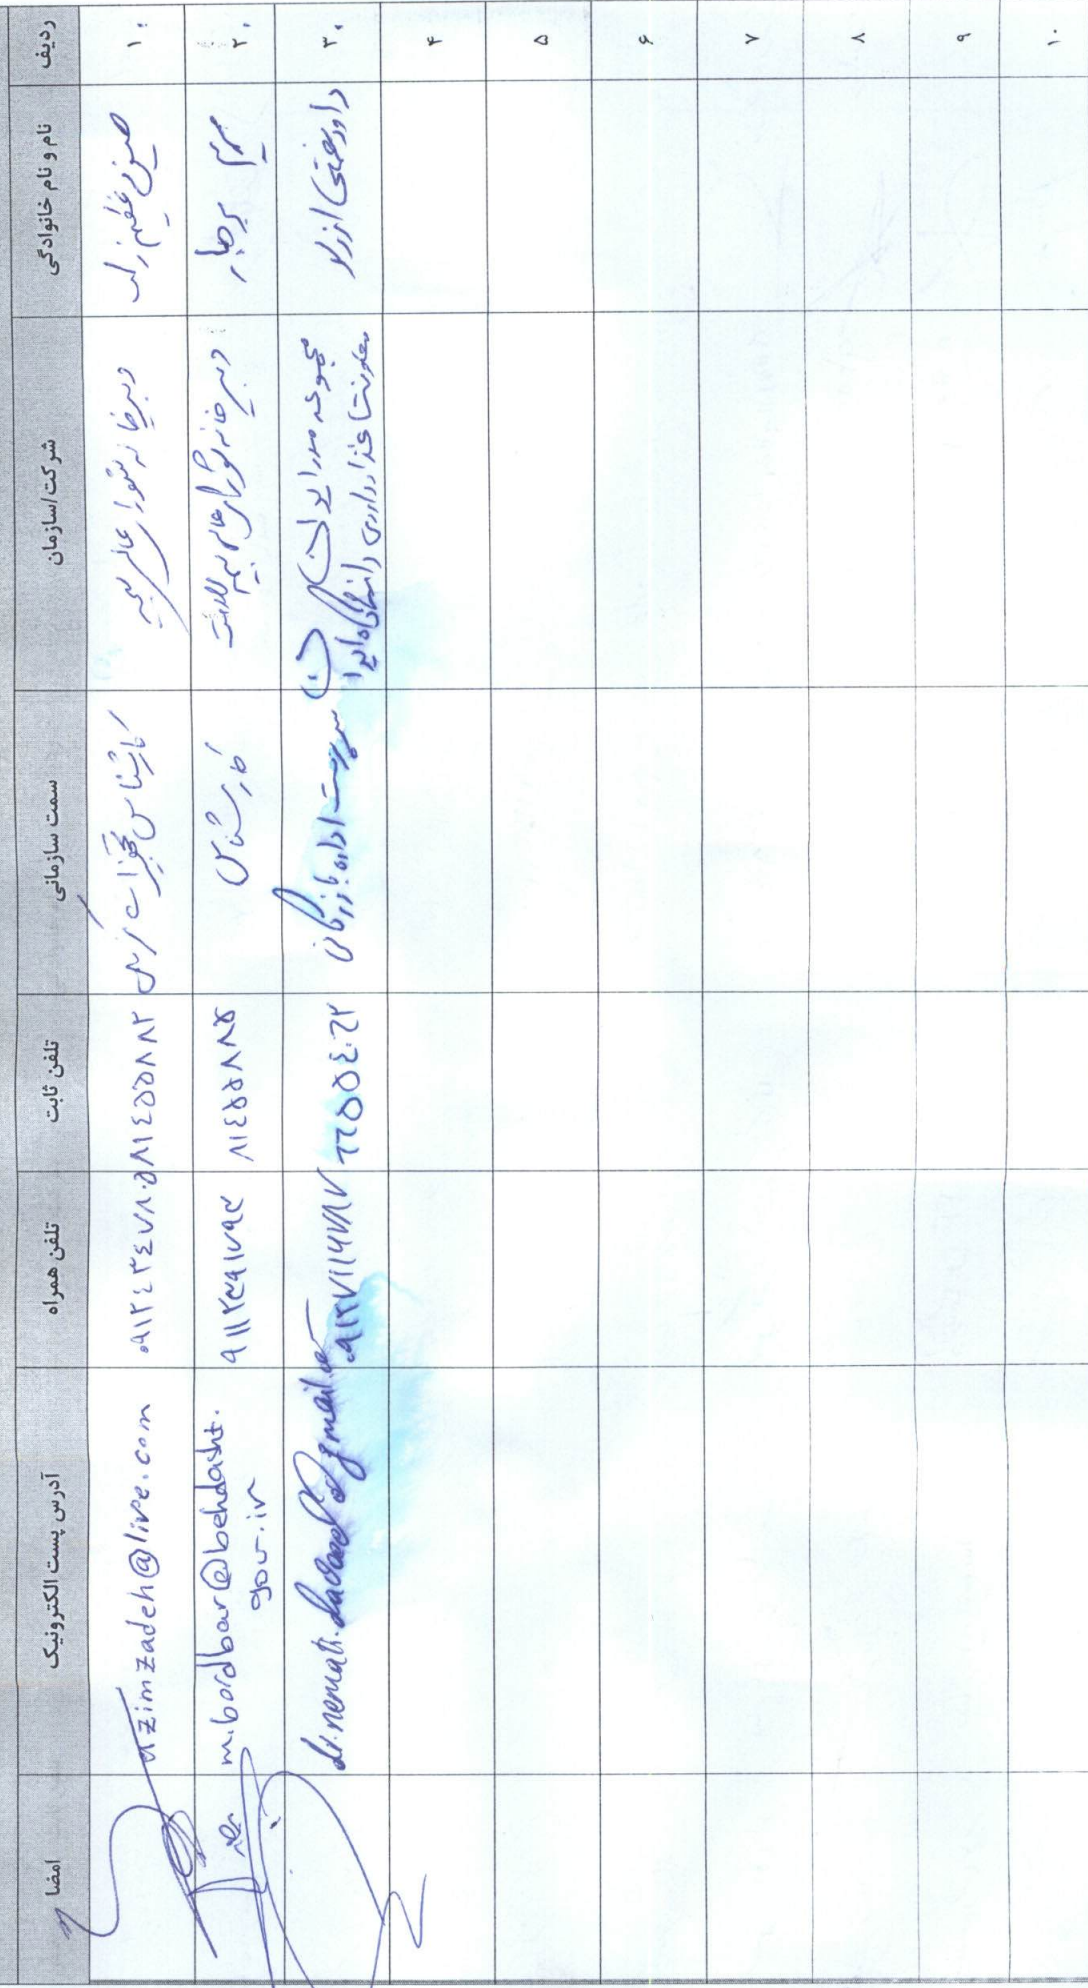 ردیف
نام و نام خانوادگی
شرکت/سازمان
سمت سازمانی
تلفن ثابت
تلفن همراه
آدرس پست الکترونیک
امضا
۱
عظیم زاده
دبیرخانه شورای عالی بیمه
کارشناس
۸۱۴۵۵۸۸۲
۰۹۱۲۴۳۴۷۸۰۵
azimzadeh@live.com
۲
مریم بردبار
دبیرخانه شورای عالی بیمه سلامت
کارشناس
۸۱۴۵۵۸۸۵
m.bordbar@behdasht.
gov.ir
۳
داور نعمتی
معاونت غذا و داروی دانشگاه ایران
سرپرست اداره بازرگانی
۶۶۵۵۴۰۶۲
dr.nemati.davood@gmail.com
۴
۵
۶
۷
۸
۹
۱۰